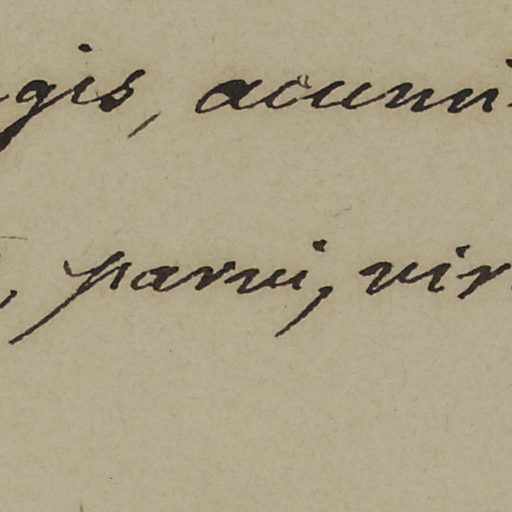 gis, acumi
, parvi, vir